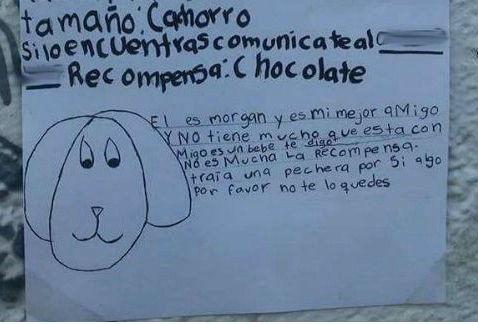 tamaño: Cachorro
Si lo encuentras comunicate al
Recompensa: Chocolate
El es morgan y es mi mejor aMigo
Y NO tiene mucho que esta con
Migo es un bebe te digo!
No es Mucha La Recompensa.
traia una pechera por si algo
Por favor no te lo quedes